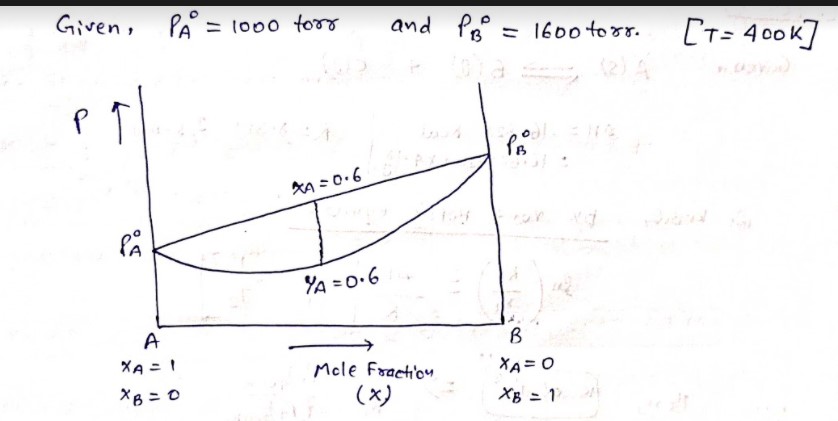 Given, PA° = 1000 torr and PB° = 1600 torr. [T = 400K]
P ↑
PB°
xA = 0.6
PA°
YA = 0.6
A → B
XA = 1 Mole Fraction XA = 0
XB = 0 (x) XB = 1